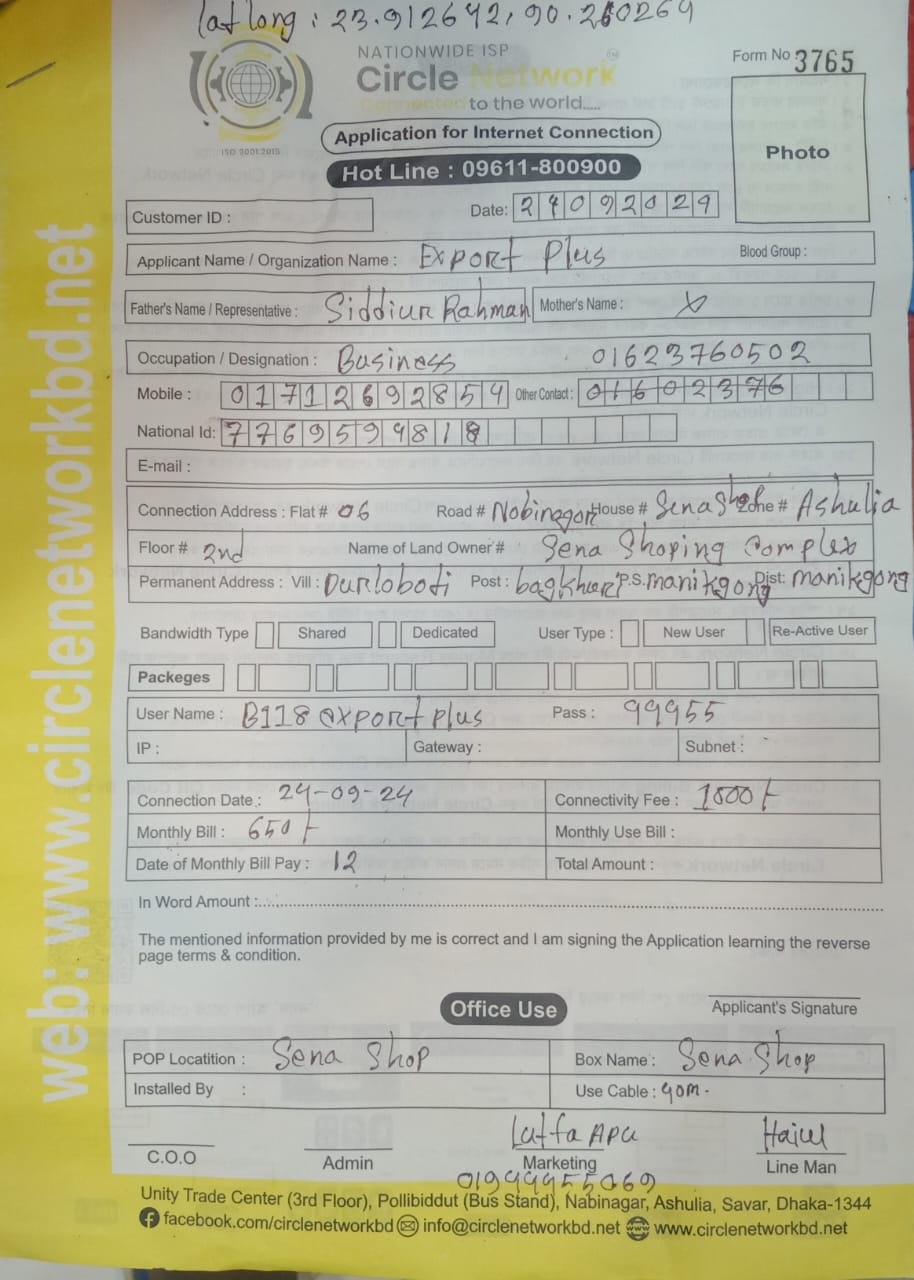 lat long : 23.912642, 90.260269
NATIONWIDE ISP
Circle Network
Connected to the world.....
ISO 9001:2015
Form No 3765
Application for Internet Connection
Hot Line : 09611-800900
Photo
Customer ID :
Date: 24092024
Applicant Name / Organization Name : Export Plus Blood Group :
Father's Name / Representative : Siddiur Rahman Mother's Name : X
Occupation / Designation : Business 01623760502
Mobile : 01712692854 Other Contact : 01602376
National Id: 7769594818
E-mail :
Connection Address : Flat # 06 Road # Nobinagor House # Sena Shop Zone # Ashulia
Floor # 2nd Name of Land Owner # Sena Shoping Complex
Permanent Address : Vill : Durloboti Post : bagkhuri P.S. manikgong Dist: manikgong
Bandwidth Type Shared Dedicated User Type : New User Re-Active User
Packeges
User Name : B118 export plus Pass : 99955
IP : Gateway : Subnet :
Connection Date : 24-09-24 Connectivity Fee : 1500/-
Monthly Bill : 650/- Monthly Use Bill :
Date of Monthly Bill Pay : 12 Total Amount :
In Word Amount :
The mentioned information provided by me is correct and I am signing the Application learning the reverse
page terms & condition.
Office Use
Applicant's Signature
POP Locatition : Sena Shop Box Name : Sena Shop
Installed By : Use Cable : 90m-
Lutfa Apu
C.O.O Admin Marketing Line Man
01999955069
Unity Trade Center (3rd Floor), Pollibiddut (Bus Stand), Nabinagar, Ashulia, Savar, Dhaka-1344
facebook.com/circlenetworkbd info@circlenetworkbd.net www.circlenetworkbd.net
web: www.circlenetworkbd.net